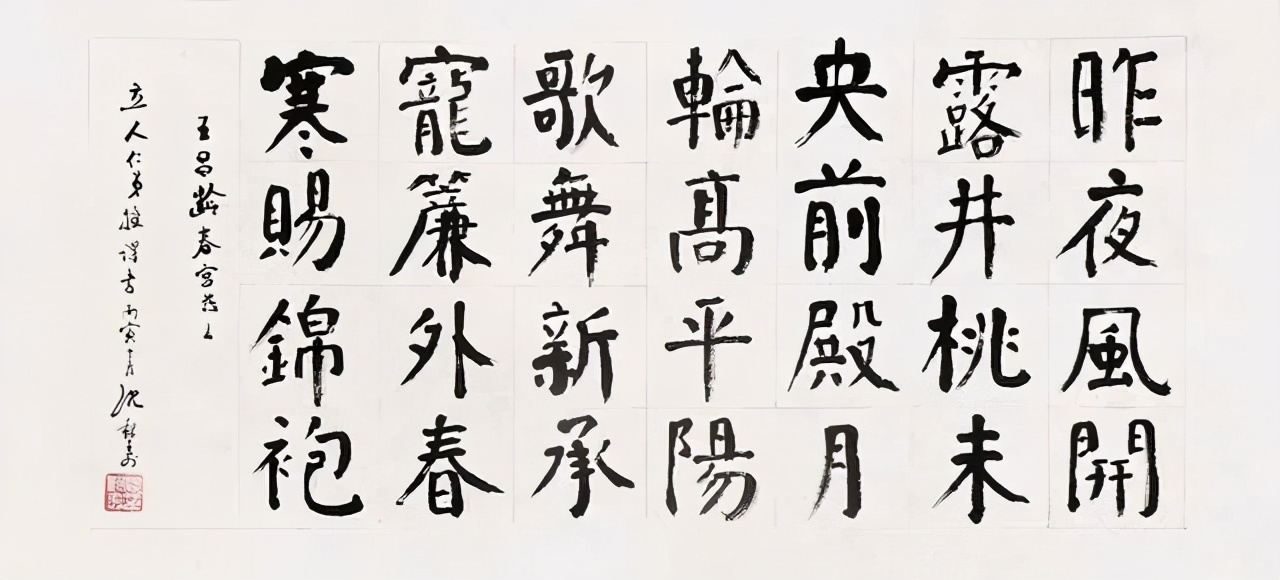 昨夜風開
露井桃未
央前殿月
輪髙平陽
歌舞新承
寵簾外春
寒賜錦袍
王昌齡春宮
立人仁弟 丙寅 沈